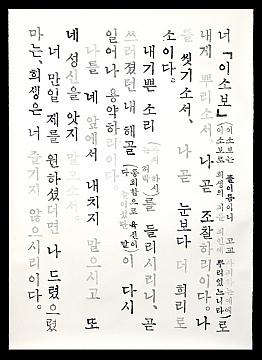 너『이소보』(이소보는 풀이름이니 고교 사파하는예에
이소보로 희생의 피를 피인에 뿌리었느니라)로
내게 뿌리소서, 나 곧 조찰하리이다. 나
를 씻기소서, 나 곧 눈보다 더 희리로
소이다.
내기쁜 소리 를 들리시리니, 곧
쓰러졌던 내 해골 (통회함으로 육신이 말)이 다시
일어나 용약하리이다.
나를 네 앞에서 내치지 말으시고 또
네 성신을 앗지 말으소서.
너 만일 제를 원하셨더면 나 드렸으렸
마는, 희생은 너 즐기지 않으시리이다.